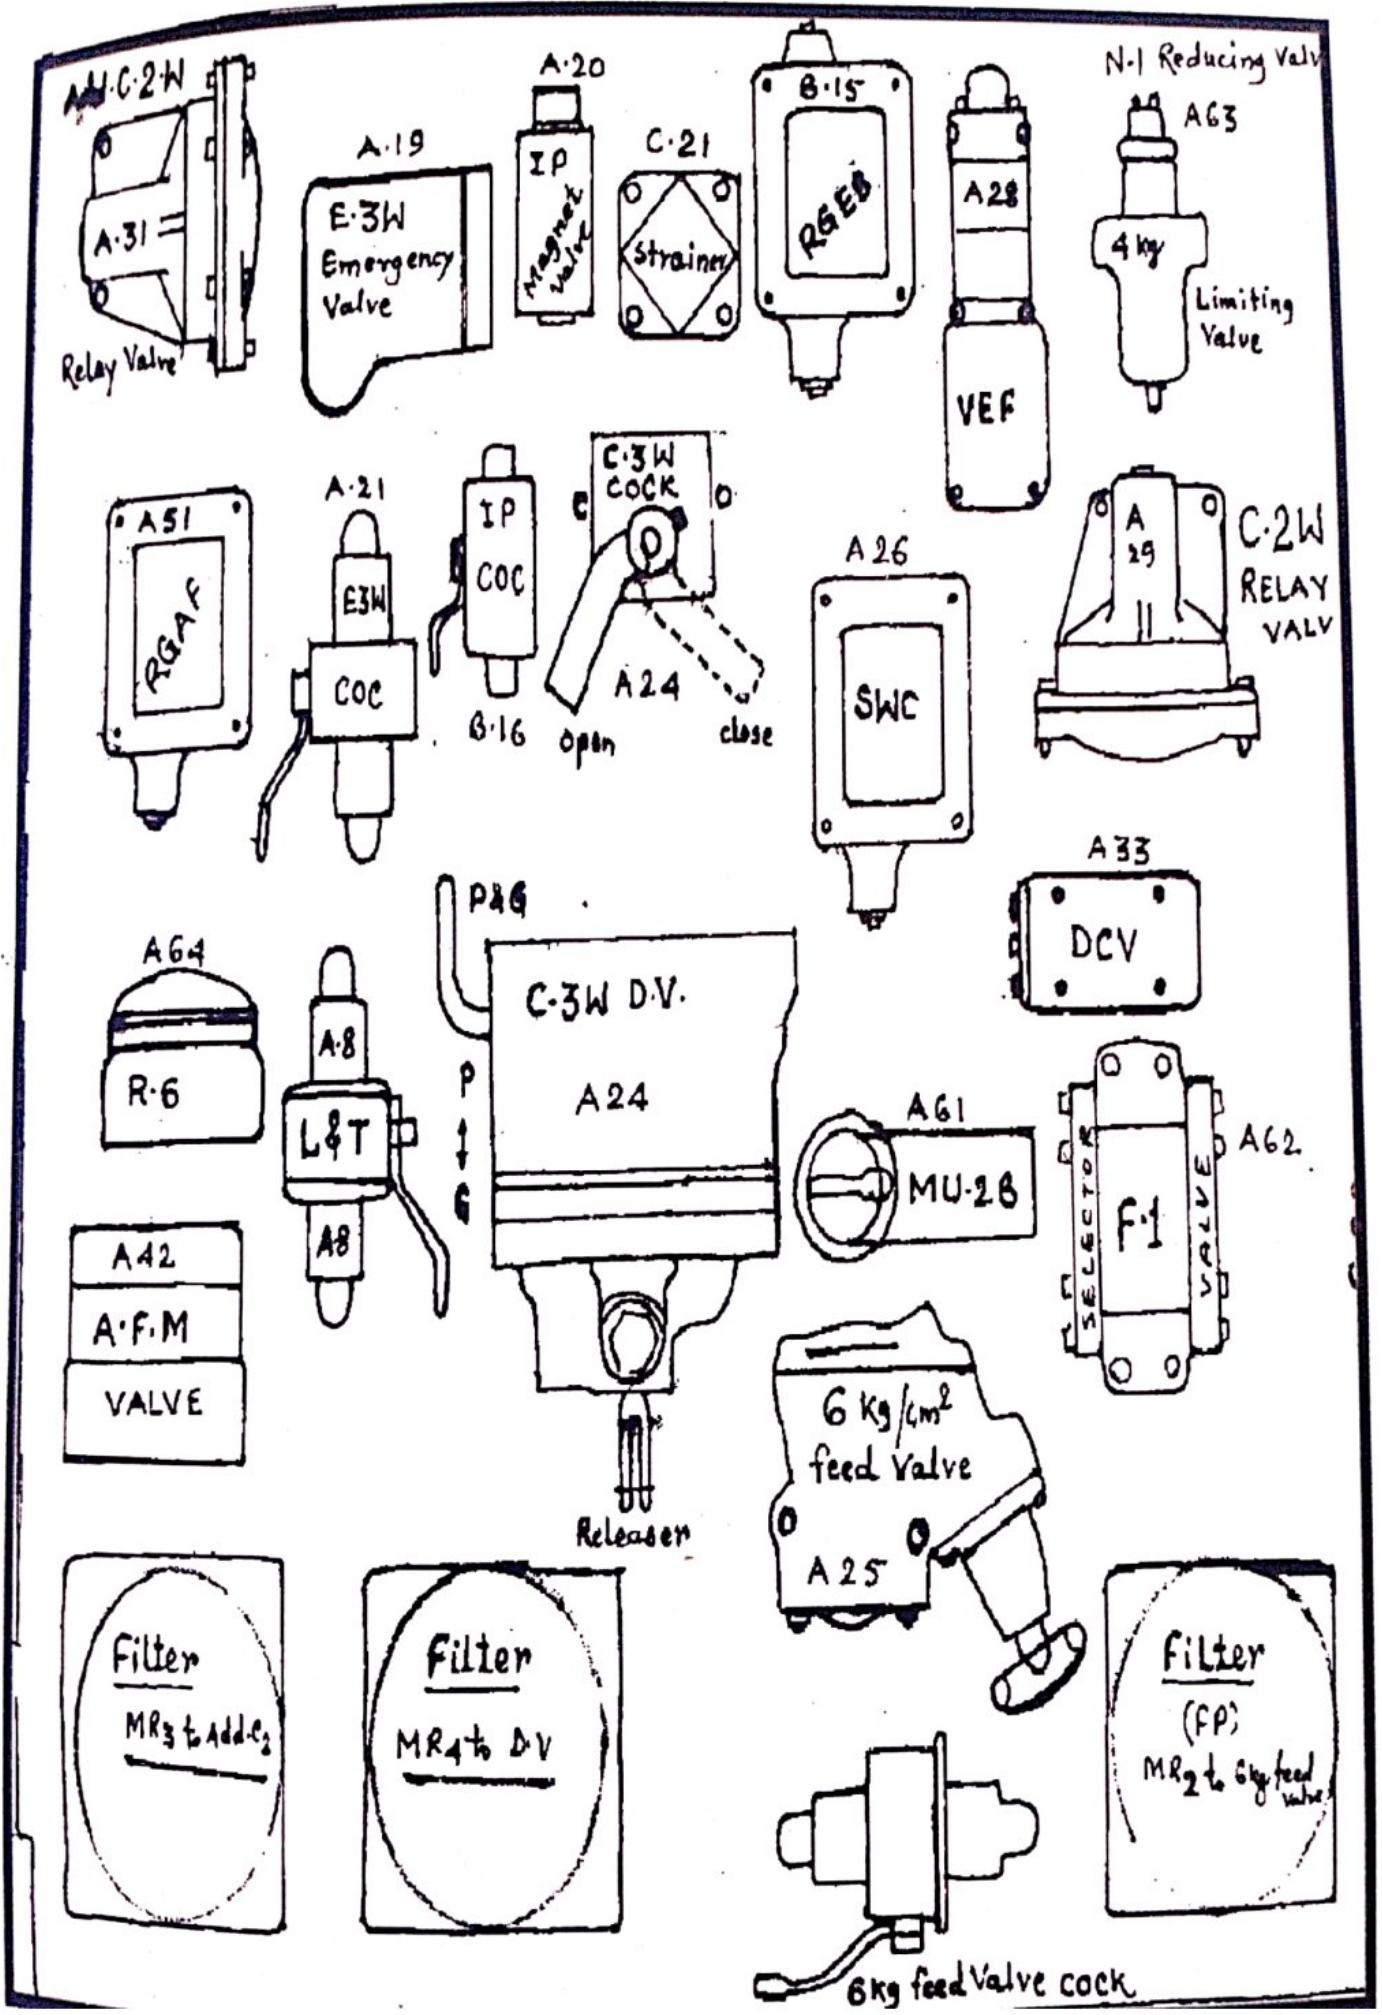 Add.C.2.W
A.31
Relay Valve
A.19
E.3W
Emergency
Valve
A.20
IP
Magnet
Valve
C.21
Strainer
B.15
RGEB
A28
VEF
N.1 Reducing Valv
A63
4 kg
Limiting
Valve
A51
RGAF
A.21
E3W
COC
IP
COC
B.16
C.3W
COCK
C
O
A24
open
close
A26
SWC
A
29
C.2W
RELAY
VALV
A33
DCV
A64
R.6
A.8
L&T
A8
P&G
P
G
C.3W D.V.
A24
Releaser
A61
MU.2B
SELECTOR
F.1
VALVE
A62
A42
A.F.M
VALVE
6 Kg/cm²
feed Valve
A25
Filter
MR3 to Add.C2
Filter
MR4 to D.V
Filter
(FP)
MR2 to 6kg feed
valve
6kg feed Valve cock